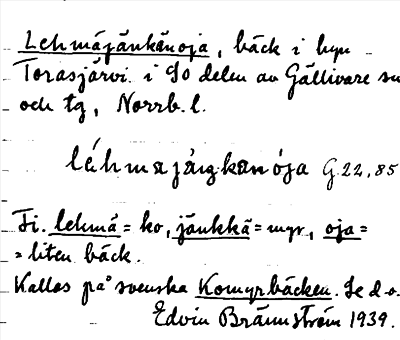 Lehmäjänkänoja, bäck i byn
Torasjärvi i SO delen av Gällivare sn
och tg, Norrb. l.
léhmajäŋkanója G 22, 85
Fi. lehmä = ko, jänkkä = myr, oja =
= liten bäck.
Kallas på svenska Komyrbäcken. Se d.o.
Edvin Brännström 1939.